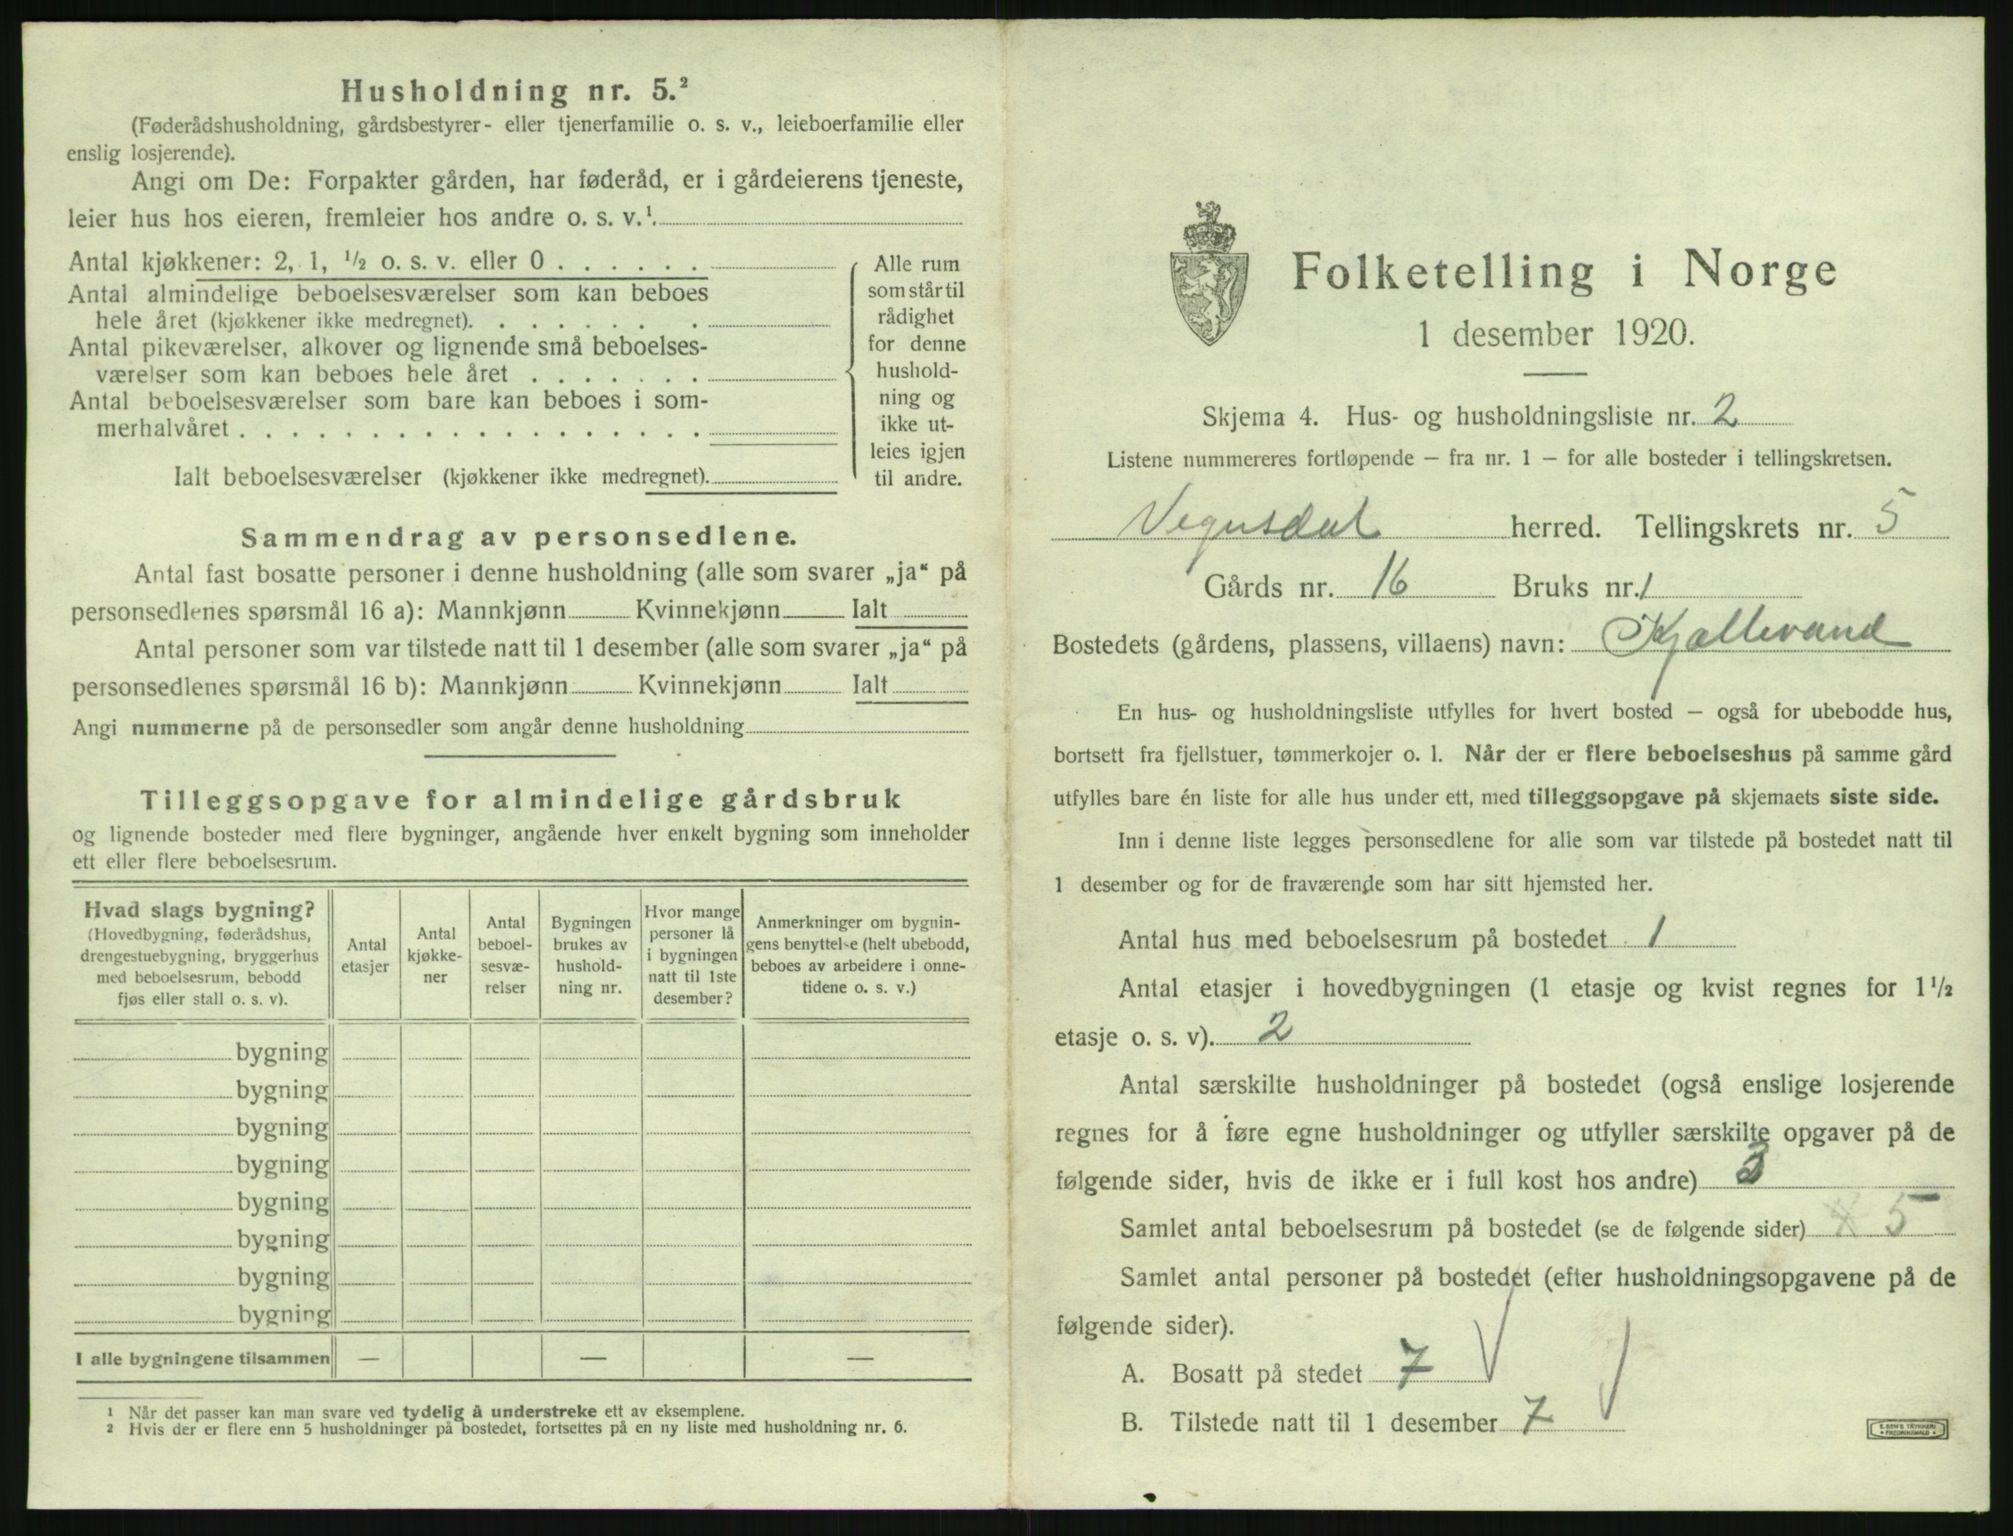 Husholdning nr. 5.²
(Føderådshusholdning, gårdsbestyrer- eller tjenerfamilie o. s. v., leieboerfamilie eller
enslig losjerende).
Angi om De: Forpakter gården, har føderåd, er i gårdeierens tjeneste,
leier hus hos eieren, fremleier hos andre o. s. v.¹.
Antal kjøkkener: 2, 1, ½ o. s. v. eller 0 . . . . . .
Antal almindelige beboelsesværelser som kan beboes
hele året (kjøkkener ikke medregnet). . . . . . . . .
Antal pikeværelser, alkover og lignende små beboelses-
værelser som kan beboes hele året . . . . . . .
Antal beboelsesværelser som bare kan beboes i som-
merhalvåret . . . . . . . . . . . . . . . . . .
Ialt beboelsesværelser (kjøkkener ikke medregnet).
Alle rum
som står til
rådighet
for denne
hushold-
ning og
ikke ut-
leies igjen
til andre.
Sammendrag av personsedlene.
Antal fast bosatte personer i denne husholdning (alle som svarer „ja“ på
personsedlenes spørsmål 16 a): Mannkjønn Kvinnekjønn Ialt
Antal personer som var tilstede natt til 1 desember (alle som svarer „ja“ på
personsedlenes spørsmål 16 b): Mannkjønn Kvinnekjønn Ialt
Angi nummerne på de personsedler som angår denne husholdning
Tilleggsopgave for almindelige gårdsbruk
og lignende bosteder med flere bygninger, angående hver enkelt bygning som inneholder
ett eller flere beboelsesrum.
Hvad slags bygning?
(Hovedbygning, føderådshus,
drengestuebygning, bryggerhus
med beboelsesrum, bebodd
fjøs eller stall o. s. v).
Antal
etasjer
Antal
kjøkke-
ner
Antal
beboel-
sesvæ-
relser
Bygningen
brukes av
hushold-
ning nr.
Hvor mange
personer lå
i bygningen
natt til 1ste
desember?
Anmerkninger om bygnin-
gens benyttelse (helt ubebodd,
beboes av arbeidere i onne-
tidene o. s. v.)
bygning
bygning
bygning
bygning
bygning
bygning
bygning
bygning
I alle bygningene tilsammen — — —
¹ Når det passer kan man svare ved tydelig å understreke ett av eksemplene.
² Hvis der er flere enn 5 husholdninger på bostedet, fortsettes på en ny liste med husholdning nr. 6.
Folketelling i Norge
1 desember 1920.
Skjema 4. Hus- og husholdningsliste nr. 2
Listene nummereres fortløpende – fra nr. 1 – for alle bosteder i tellingskretsen.
Vegusdal herred. Tellingskrets nr. 5
Gårds nr. 16 Bruks nr. 1
Bostedets (gårdens, plassens, villaens) navn: Kjøllevand
En hus- og husholdningsliste utfylles for hvert bosted – også for ubebodde hus,
bortsett fra fjellstuer, tømmerkojer o. l. Når der er flere beboelseshus på samme gård
utfylles bare én liste for alle hus under ett, med tilleggsopgave på skjemaets siste side.
Inn i denne liste legges personsedlene for alle som var tilstede på bostedet natt til
1 desember og for de fraværende som har sitt hjemsted her.
Antal hus med beboelsesrum på bostedet 1
Antal etasjer i hovedbygningen (1 etasje og kvist regnes for 1½
etasje o. s. v). 2
Antal særskilte husholdninger på bostedet (også enslige losjerende
regnes for å føre egne husholdninger og utfyller særskilte opgaver på de
følgende sider, hvis de ikke er i full kost hos andre) 3
Samlet antal beboelsesrum på bostedet (se de følgende sider) 5
Samlet antal personer på bostedet (efter husholdningsopgavene på de
følgende sider).
A. Bosatt på stedet 7
B. Tilstede natt til 1 desember 7